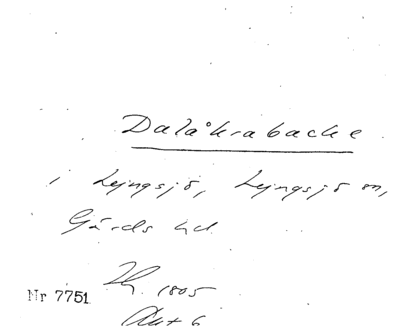 Dalåkrabacke
i Lyngsjö, Lyngsjö sn,
Gärds hd.
1805
Akt 6
Nr 7751